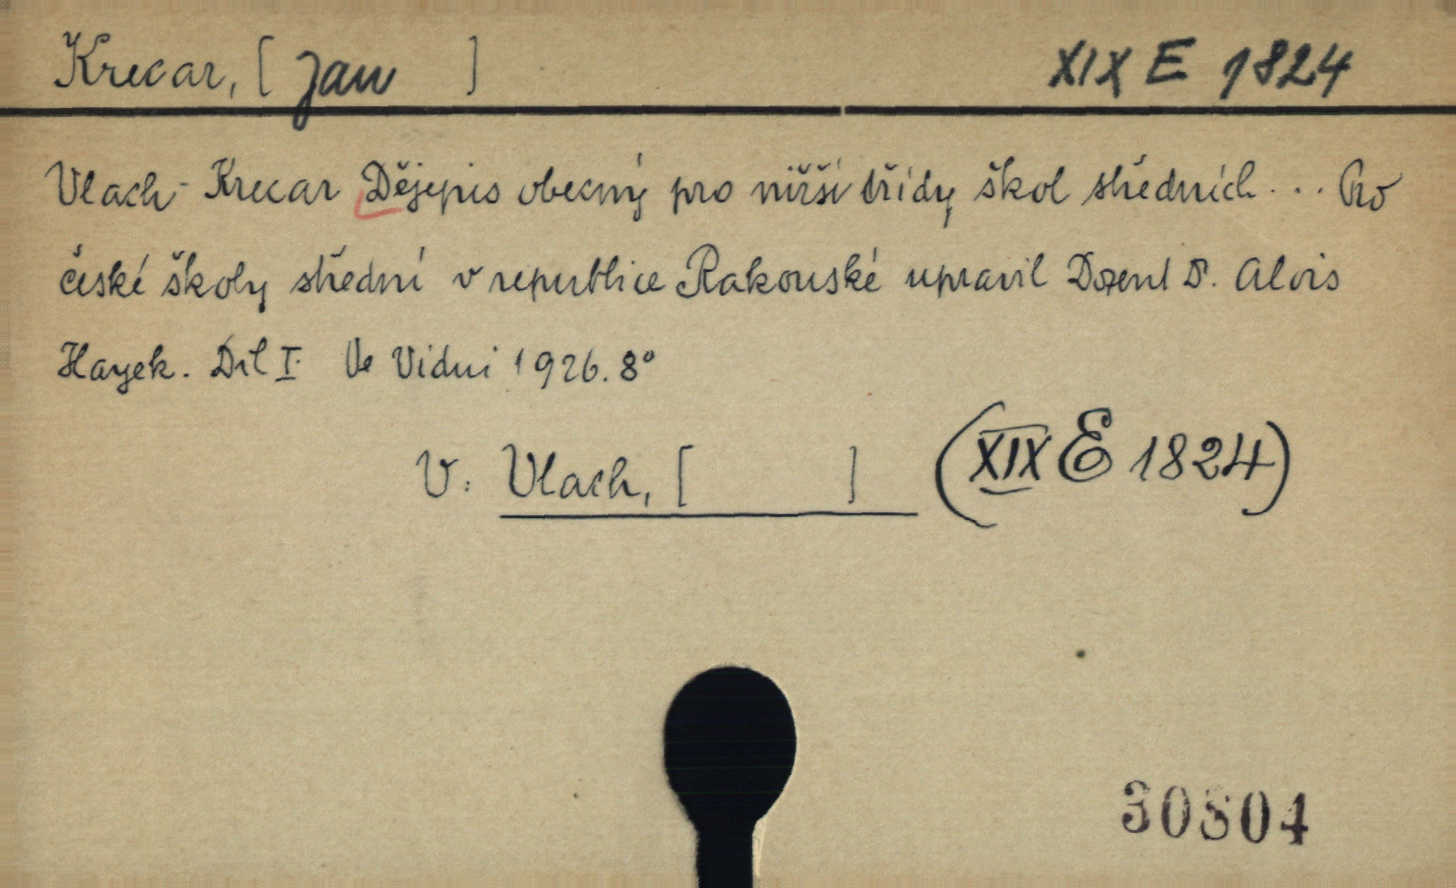 Krecar, [Jan ] XIX E 1824
Vlach-Krecar Dějepis obecný pro nižší třídy škol středních... Pro
české školy střední v republice Rakouské upravil Dozent Dr. Alois
Hayek. Díl I. Ve Vídni 1926. 8°
V. Vlach, [ ] (XIX E 1824)
30804